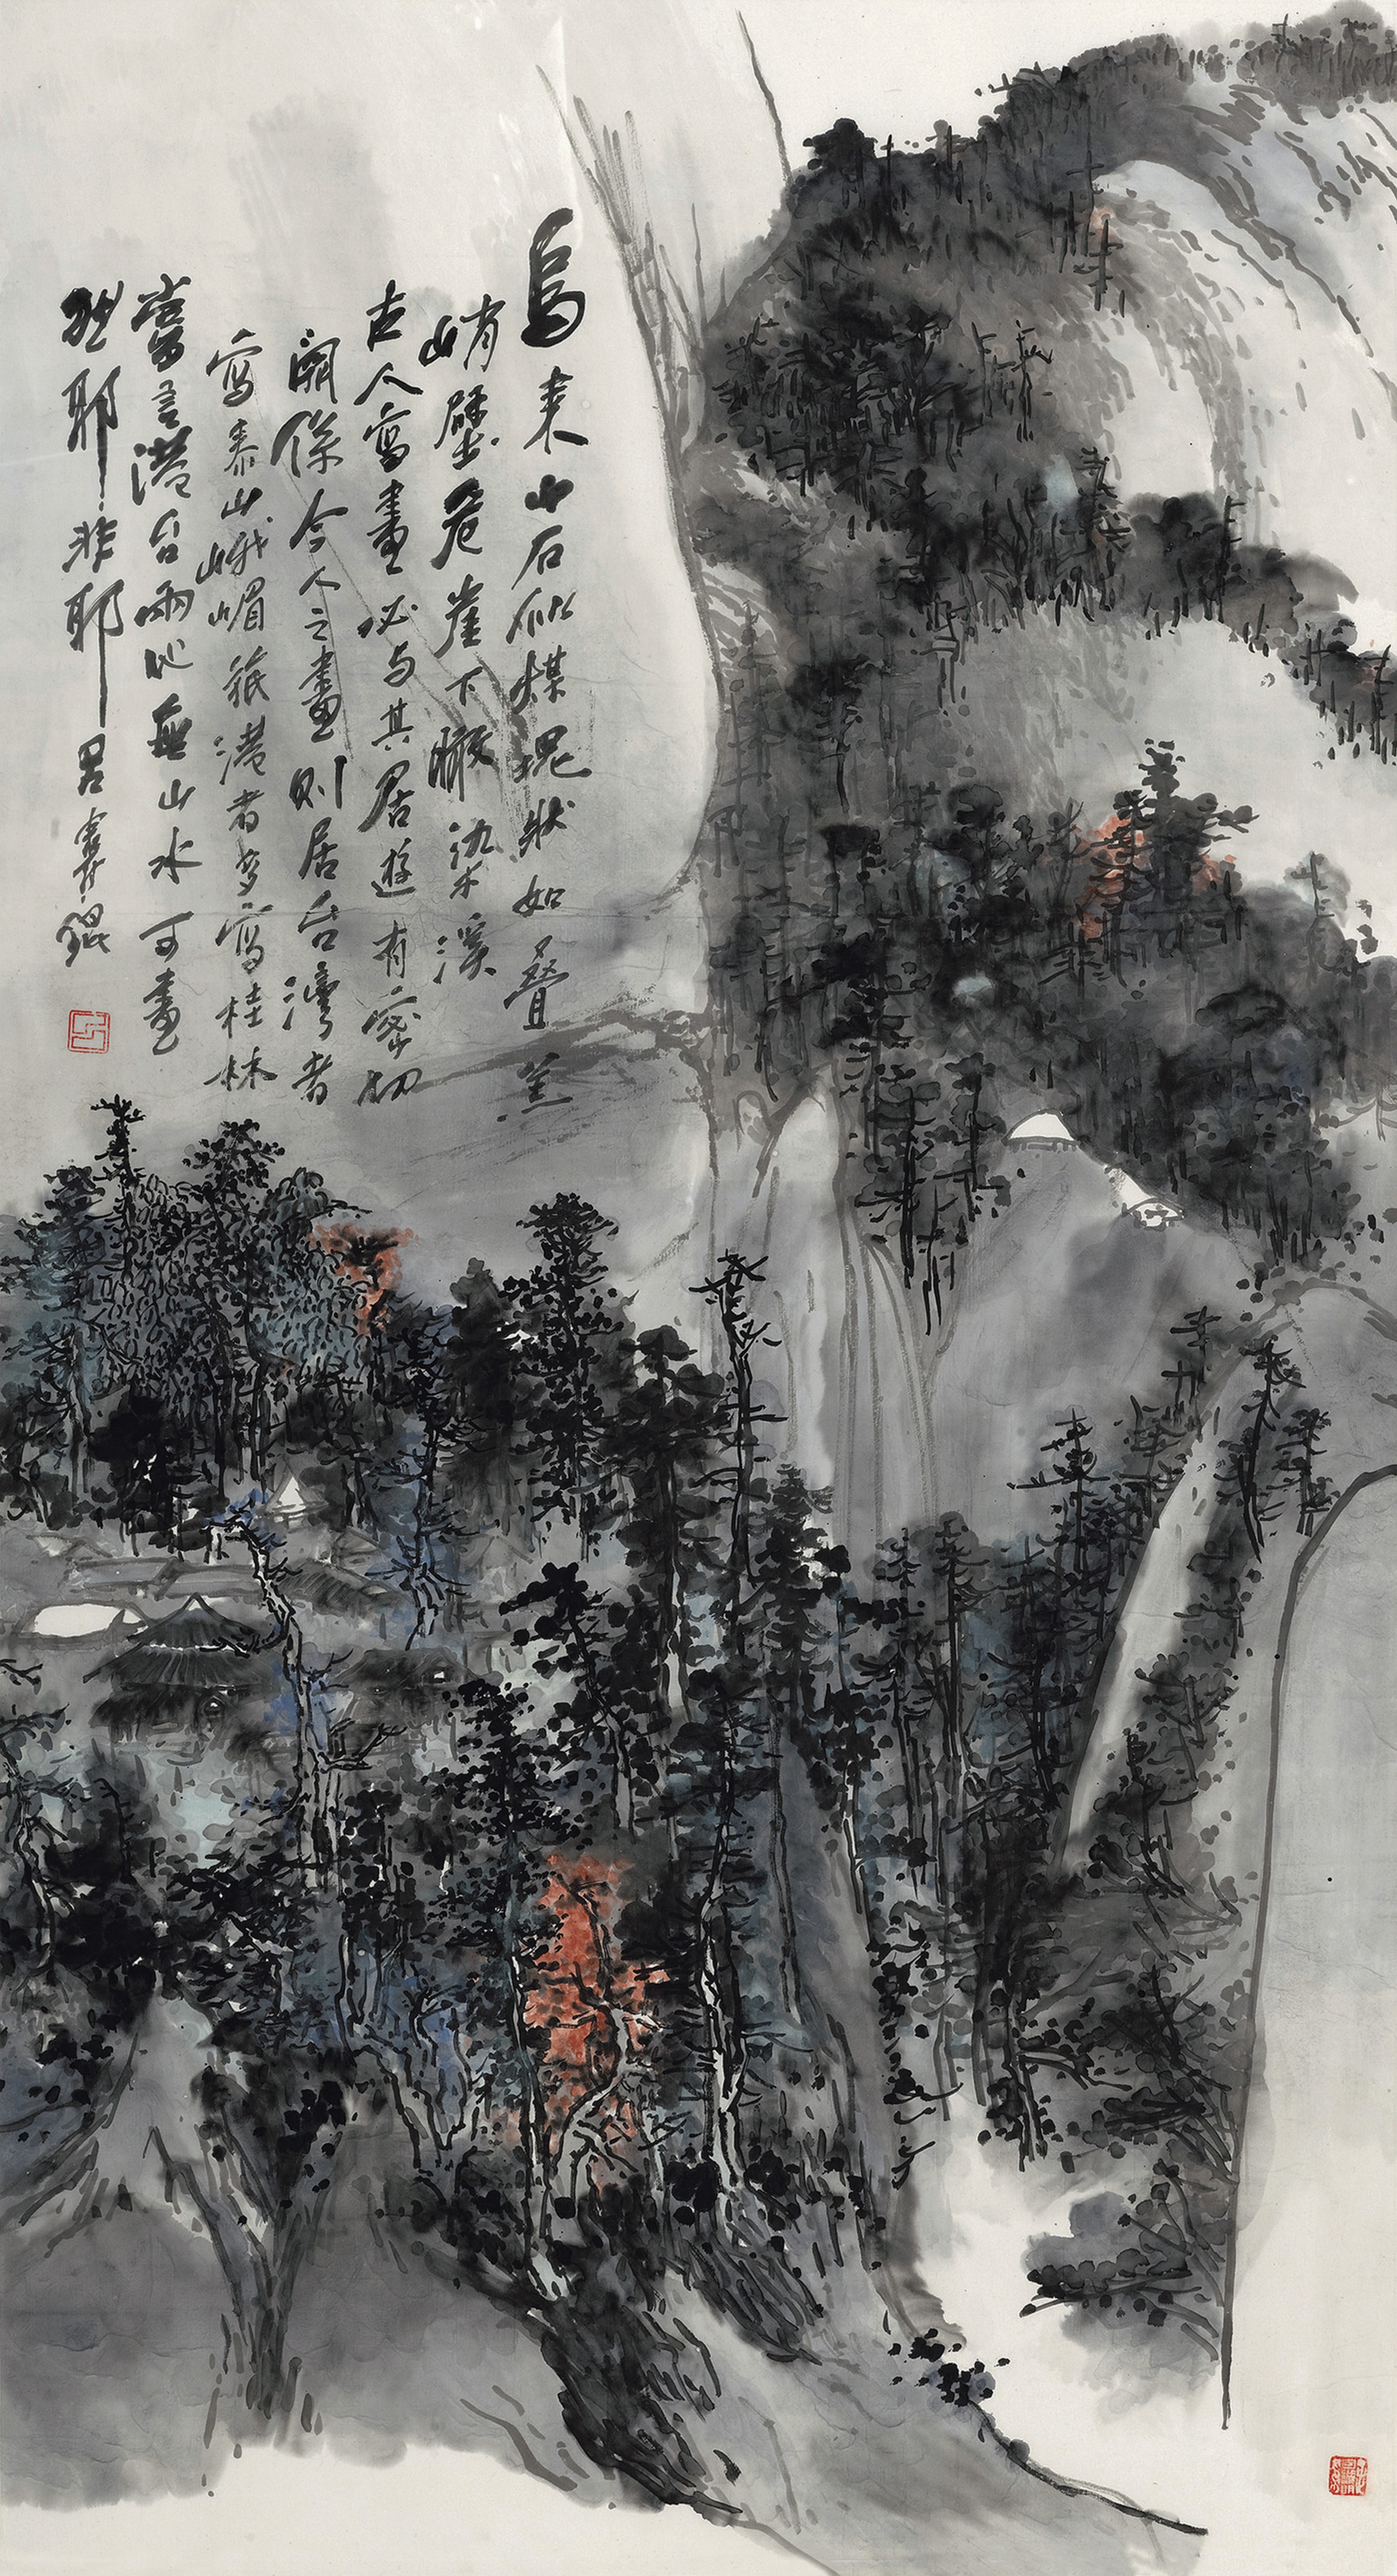 烏来山石似煤塊狀如疊羔
峭壁危崖下瞰溪
古人寫畫必与其居遊有密切
關係今人之畫則居台灣者
寫泰山峨嵋旅港者多寫桂林
嘗言港台兩地無山水可畫
然耶非耶呂壽琨